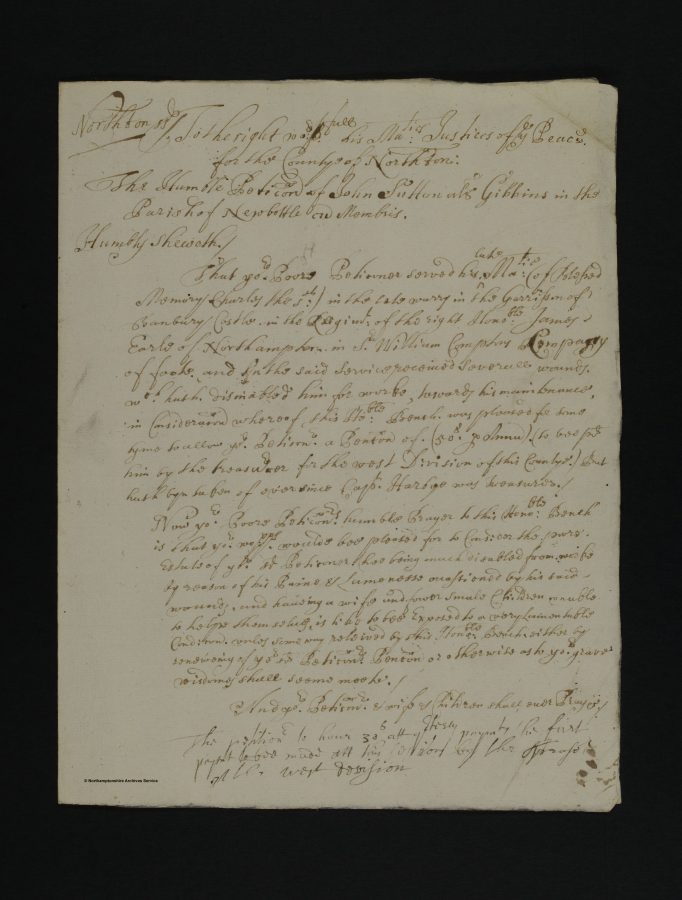 Northton ss
To the right worpfull his Maties Justices of ye Peace
for the County of Northton:
The Humble Peticon of John Sutton als Gibbins in the
Parish of Newbottle cu Membris.
Humbly Sheweth./
That yor Poore Peticoner served his late Matie: (of blessed
Memory Charles the 1st:) in the late warrs in the Garrison of
Banbury Castle in the Regimt: of the right Honoble James
Earle of Northampton in Sr William Comptons Compagny
of foote and in the said service received severall wounds
wch: hath dismabled him for worke, towards his maintenance,
in Consideracon whereof this Hoble: Bench was pleased some
tyme to allow yor Peticonr: a Pencon of (50s: p Annu) (to bee pd
him by the treasurer for the west Division of this County.) But
hath byn taken of ever since Capt: Harbye was treasurer./
Now yor Poore Peticonrs humble Prayer to this Honoble: Bench
is that yor worpps would bee pleased for to Consider the sad
estate of yor sd Peticoner, hee being much disabled from worke
by reason of his Paine & Lamenesse occationed by his said
wounds, and haveing a wife and fower smale Children unable
to helpe themselves, is like to bee Exposed to a very Lamentable
Condicon, unles some way releived by this Honoble: Bench either by
renewing of yor sd Peticonrs: Pencon or otherwise as to yor: grave
wisdomes shall seeme meete./
And yor: Peticonr: & wife & Children shall ever Pray &c
The petitionr to have 30s att quarterly paymts the first
paymt to bee made att this Session by the Treasr
of the west devision
© Northamptonshire Archives Service